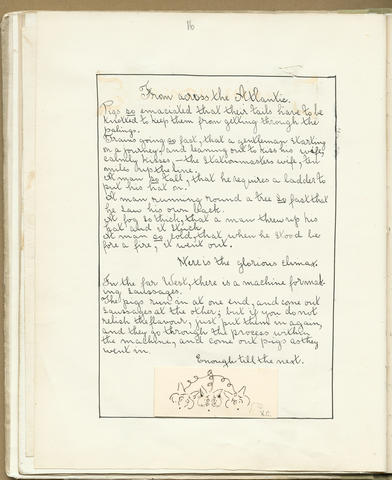 16.
From across the Atlantic.
Pigs so emaciated that their tails have to be
knotted to keep them from getting through the
palings.
Trains going so fast, that a gentleman starting
on a journey, and leaning out to kiss his wife,
calmly kisses, — the Stationmasters wife, ten
miles up the line.
A man so tall, that he requires a ladder to
put his hat on.
A man running round a tree so fast that
he saw his own back.
A fog so thick, that a man threw up his
hat and it stuck.
A man so cold, that when he stood be
fore a fire, it went out.
Here is the glorious climax.
In the far West, there is a machine for mak
ing Saussages.
The pigs run in at one end, and come out
Saussages at the other; but if you do not
relish the flavour, just put them in again,
and they go through the process within
the machine, and come out pigs as they
went in.
Enough till the next.
K.C.